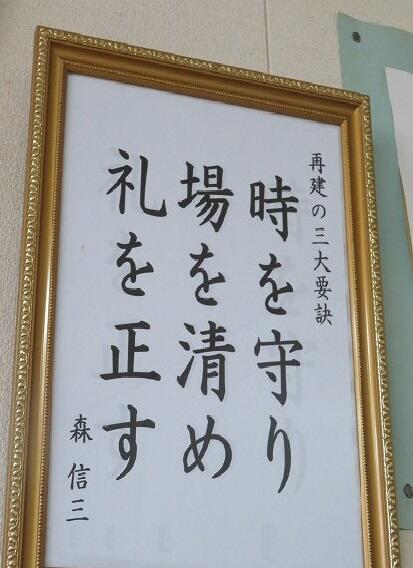 再建の三大要訣
時を守り
場を清め
礼を正す
森信三